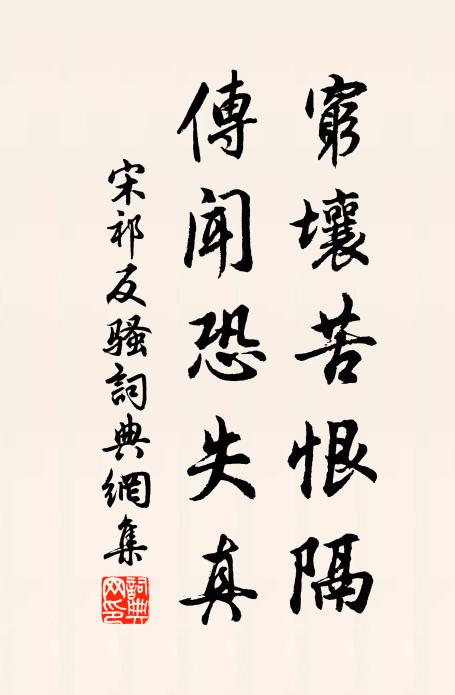 窮壤苦恨隔
傳聞恐失真
宋祁反騷詞典網集
詞典網印